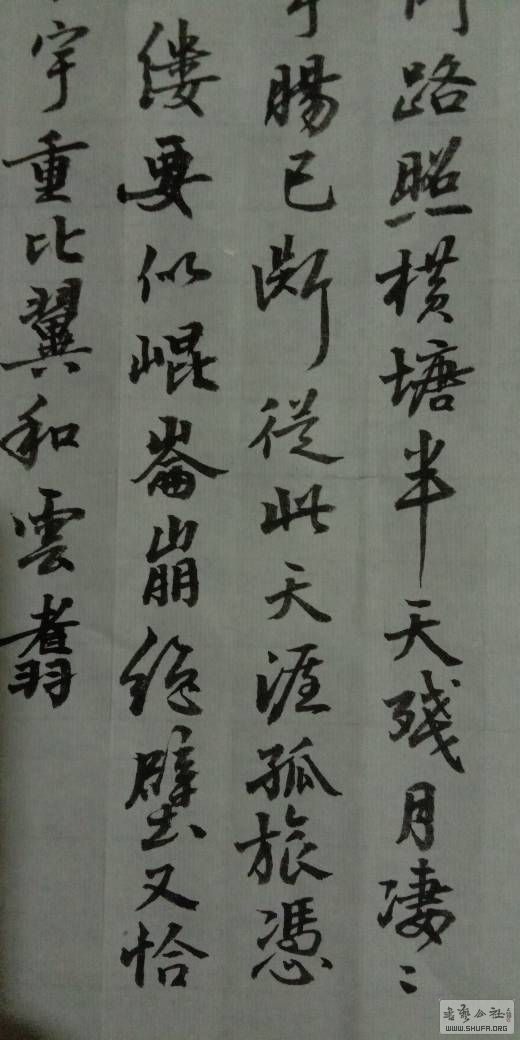 路照橫塘半天殘月凄〻
腸已斷從此天涯孤旅憑
縷要似崐崙崩絕壁又恰
宇重比翼和雲翥
书艺公社
WWW.SHUFA.ORG